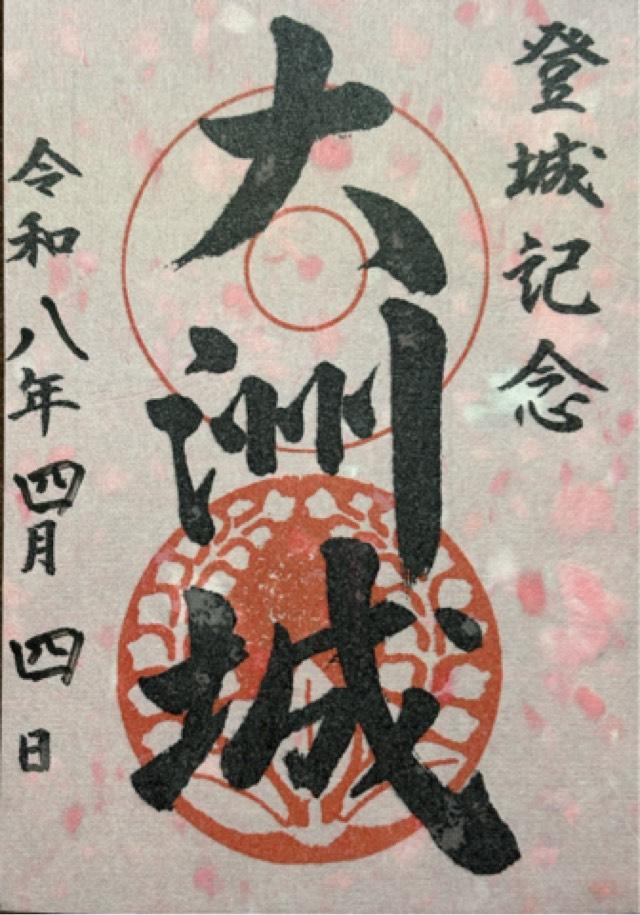 登城記念
大洲城
令和八年四月四日